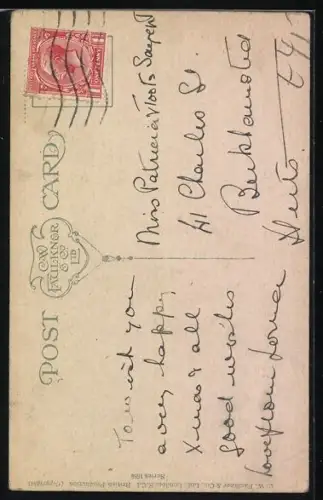 POST CARD
C.W.
FAULKNER
& CO
LTD
To wish you
a very happy
Xmas & all
good wishes
love from Lorna
Miss Patricia & Toots Sargent
41 Charles St.
Berkhamsted
Herts.
C. W. Faulkner & Co., Ltd., London, E.C.1. British Production (Copyright)